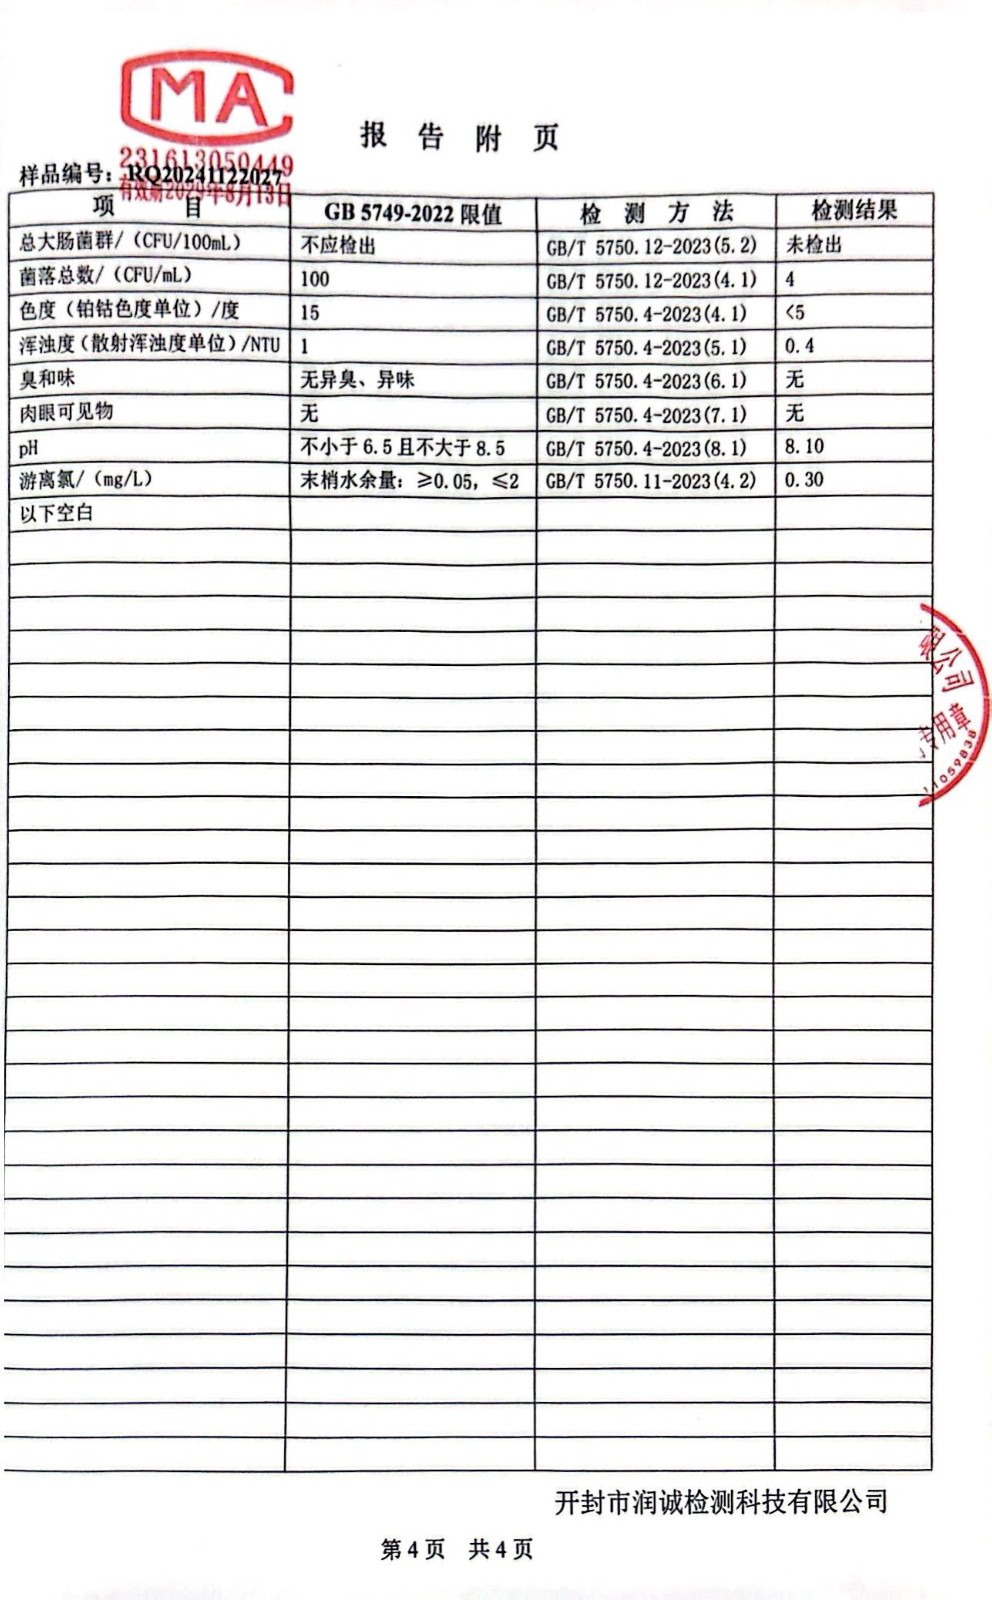 MA
231613050449
报告附页
样品编号：RQ20241122027
有效期2029年8月13日
项目 GB 5749-2022 限值 检测方法 检测结果
总大肠菌群/（CFU/100mL） 不应检出 GB/T 5750.12-2023(5.2) 未检出
菌落总数/（CFU/mL） 100 GB/T 5750.12-2023(4.1) 4
色度（铂钴色度单位）/度 15 GB/T 5750.4-2023(4.1) <5
浑浊度（散射浑浊度单位）/NTU 1 GB/T 5750.4-2023(5.1) 0.4
臭和味 无异臭、异味 GB/T 5750.4-2023(6.1) 无
肉眼可见物 无 GB/T 5750.4-2023(7.1) 无
pH 不小于 6.5 且不大于 8.5 GB/T 5750.4-2023(8.1) 8.10
游离氯/（mg/L） 末梢水余量：≥0.05，≤2 GB/T 5750.11-2023(4.2) 0.30
以下空白
限公司
专用章
11059838
开封市润诚检测科技有限公司
第 4 页 共 4 页